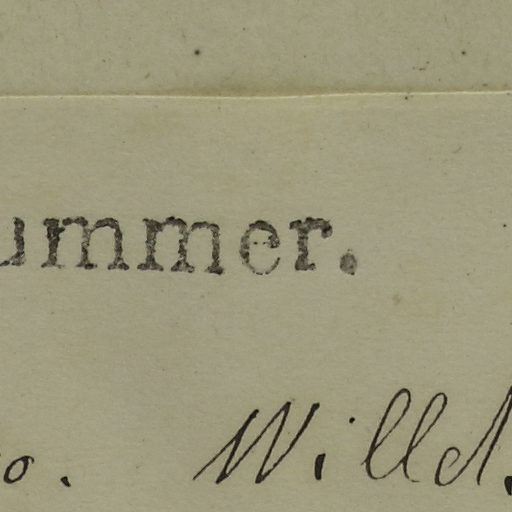 ummer.
o. Willd.